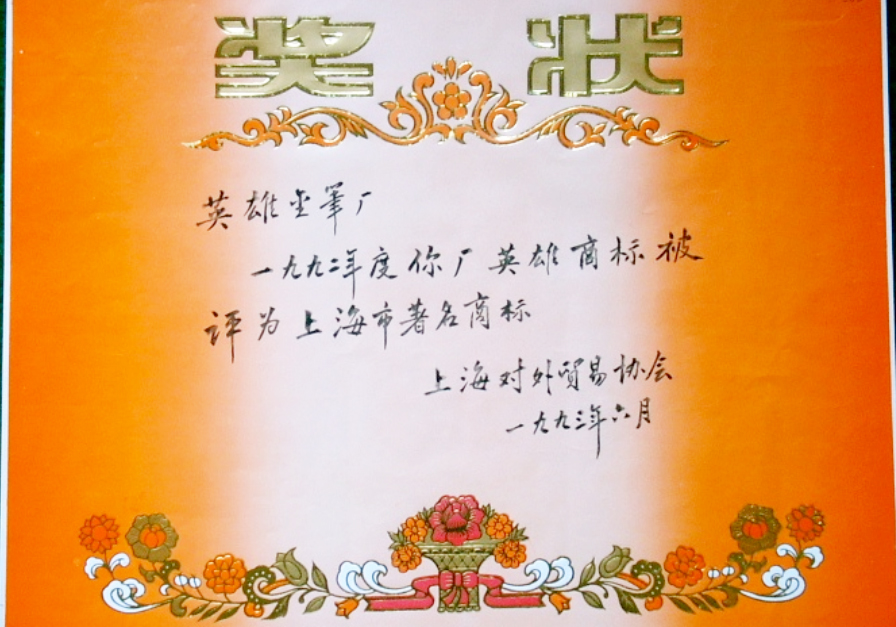 奖状
英雄金笔厂
一九九二年度你厂英雄商标被
评为上海市著名商标
上海对外贸易协会
一九九三年六月